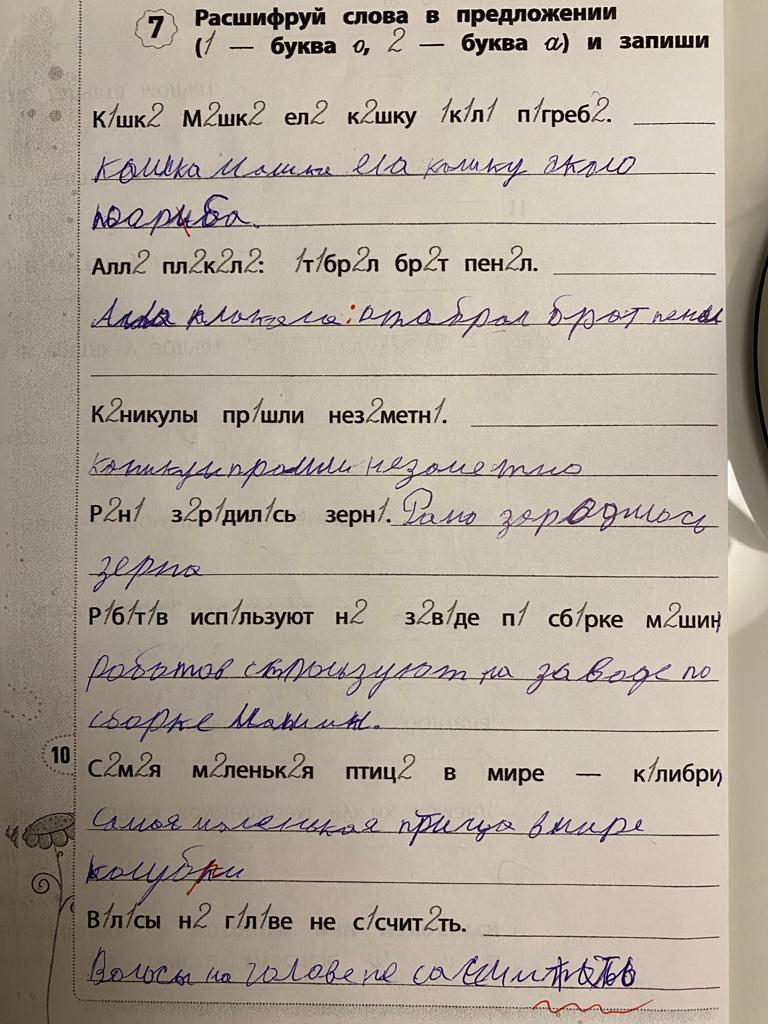 7 Расшифруй слова в предложении
(1 — буква о, 2 — буква а) и запиши
К1шк2 М2шк2 ел2 к2шку 1к1л1 п1греб2.
кошка Машка ела кашку около
поариба.
Алл2 пл2к2л2: 1т1бр2л бр2т пен2л.
Алла плакала: отабрал брат пенал
К2никулы пр1шли нез2метн1.
каникулы прошли незаметно
Р2н1 з2р1дил1сь зерн1. Рано зародилось
зерно
Р1б1т1в исп1льзуют н2 з2в1де п1 сб1рке м2шин
роботов используют на заводе по
сборке машин.
10
С2м2я м2леньк2я птиц2 в мире — к1либри
самая маленькая птица в мире
колубри
В1л1сы н2 г1л1ве не с1счит2ть.
Волосы на голове не